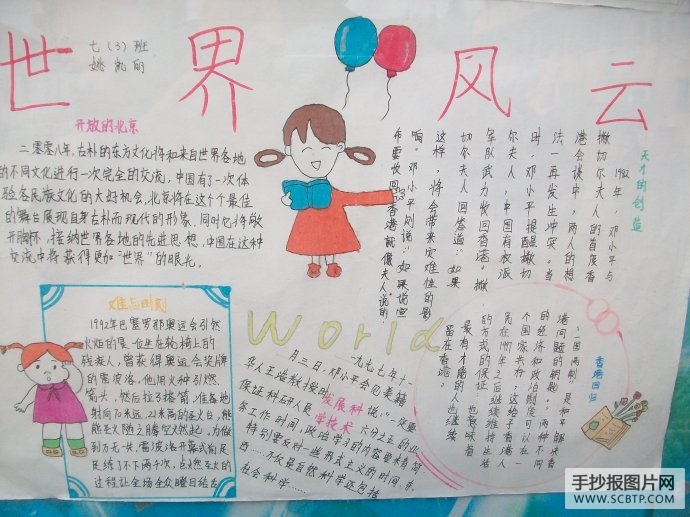 世界风云
七（3）班
姚凯丽
开放的北京
二零零八年,古朴的东方文化将和来自世界各地
的不同文化进行一次完全的交流,中国有了一次体
验各民族文化的大好机会,北京将在这个最佳
的舞台展现自身古朴而现代的形象,同时也将敞
开胸怀,接纳世界各地的先进思想,中国在这种
交流中将获得更加“世界”的眼光。
天才的创造
1982年,邓小平与
撒切尔夫人的首度香
港会谈中,两人的想
法一再发生冲突。当
时,邓小平提醒撒切
尔夫人,中国有权派
军队武力收回香港。撒
切尔夫人回答道“如果
这样,将会带来灾难性的影
响。邓小平则说“如果说宣
布要收回香港就像夫人说的,
难忘时刻
1992年巴塞罗那奥运会引燃
火炬的是一位坐在轮椅上的
残疾人,曾获得奥运会奖牌
的雷波洛,他用火种引燃
箭头,然后拉弓搭箭,准备地
射向70米远、21米高的圣火台,能
能圣火随之腾空燃起,为做
到万无一失,雷波洛开幕式前足
足练了不下两个次,点燃圣火的
过程让全场全众瞩目结舌
World
一九九七年十一
月三日,邓小平会见美籍
华人王浩教授时说:“一定要
发展科学技术
保证科研人员六分之五的业
务工作时间,政治学习的内容要来有简
特别要反对一些形式主义的时间,东
西……不仅是自然科学还包括
社会科学……
香港回归
“一国两制”是和平解决香
港问题的钥匙。两种不同
的经济和政治制度可以在一
个国家并存,这给予香港人
民在1997年之后继续维持生活
的方式的保证。也意味着
最有才能的人也继续
留在香港。
手抄报图片网
WWW.SCBTP.COM